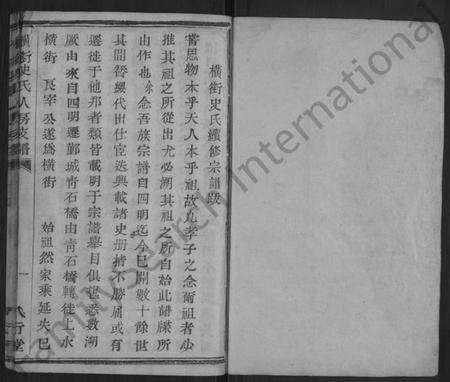 橫街史氏續修宗譜跋
嘗思物本乎天人本乎祖故凡孝子之念爾祖者必
推其祖之所從出尤必溯其祖之所自始此譜牒所
由作也余念吾族宗譜自四明迄今已閱數十餘世
其間簪纓代出仕宦迭興載諸史册指不勝屈或有
遷徙于他邦者類皆載明于宗譜舉目俱悉溯
厥由來自四明遷鄞城靑石橋由靑石橋轉徙上水
橫街 良宰公遂爲橫街 始祖然家乘延失已
橫街史氏八房支譜
一
八行堂